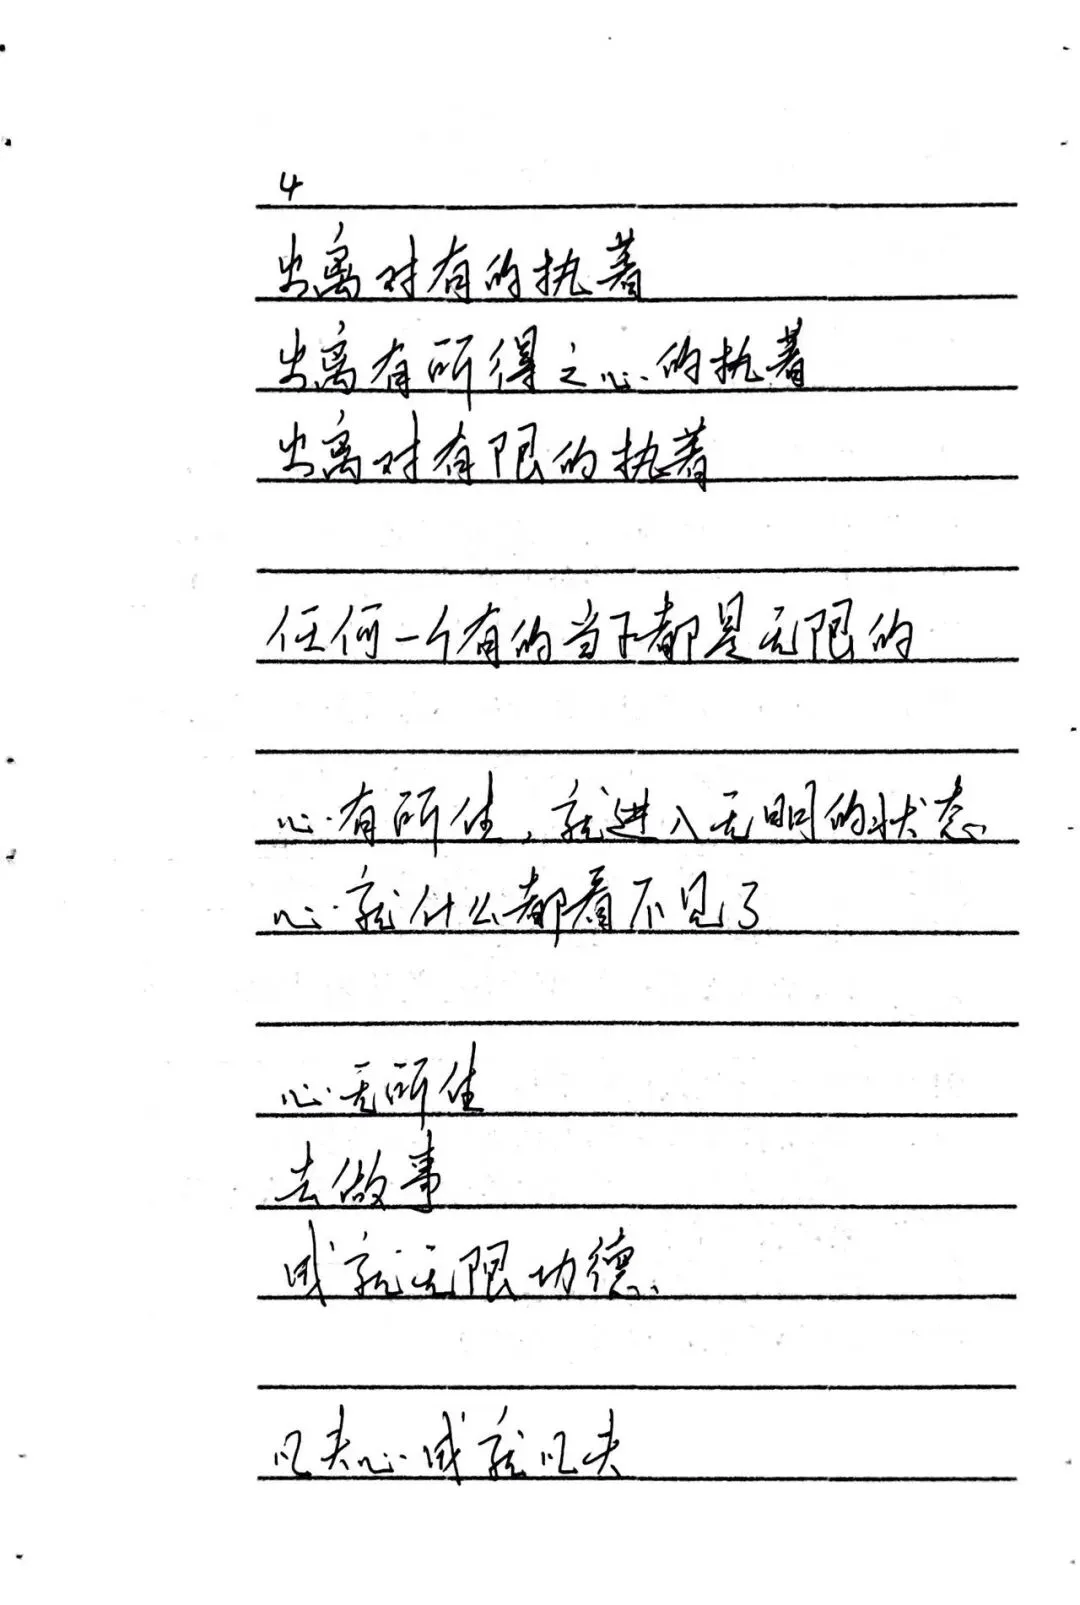 4
出离对有的执著
出离有所得之心的执著
出离对有限的执著
任何一个有的当下都是无限的
心有所生，就进入无明的状态
心就什么都看不见了
心无所生
去做事
成就无限功德
凡夫心成就凡夫